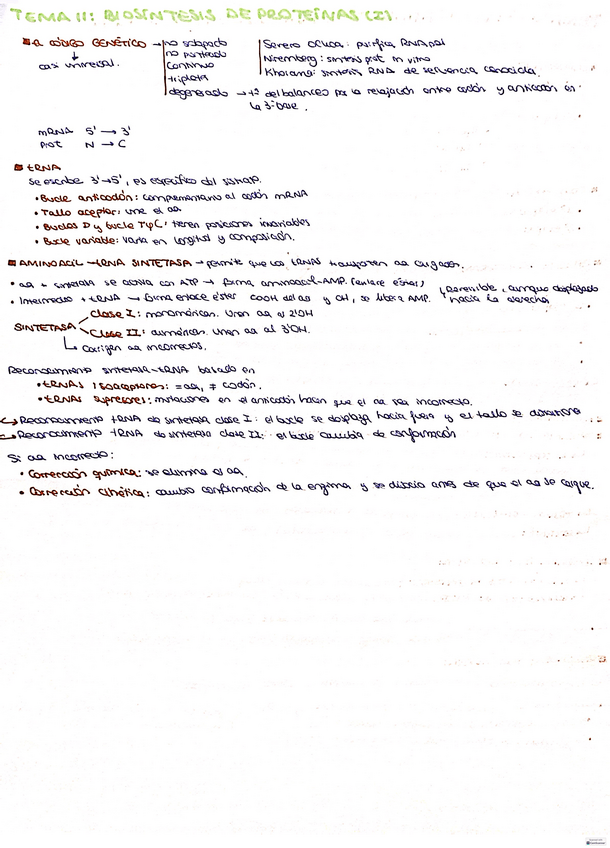 TEMA 11: BIOSÍNTESIS DE PROTEÍNAS (2)
EL CÓDIGO GENÉTICO → no solapado
no punteado
continuo
tripletes
degenerado → tª del balanceo por la relajación entre codón y anticodón en la 3ª base
casi universal.
Severo Ochoa: purifica RNA pol
Niremberg: síntesis prot in vitro
Khorana: síntesis RNA de secuencia conocida.
mRNA 5' → 3'
Prot N → C
tRNA
Se escribe 3'→5', es específico del
• Bucle anticodón: complementario al codón mRNA
• Tallo aceptor: une el aa
• Bucles D y bucle TψC: tienen posiciones invariables
• Bucle variable: varía en longitud y composición.
AMINOACIL-tRNA SINTETASA → permite que los tRNAs transporten aa cargados.
• aa + sintetasa se activa con ATP → forma aminoacil-AMP. (enlace éster)
• Intermedio + tRNA → forma enlace éster COOH del aa y OH, se libera AMP.
Reversible, aunque desplazado hacia la derecha
SINTETASA
Clase I: monoméricas. Unen aa al 2'OH
Clase II: diméricas. Unen aa al 3'OH.
Corrigen aa incorrectos.
Reconocimiento sintetasa-tRNA basado en
• tRNAs isoaceptores: = aa, ≠ codón.
• tRNAs supresores: mutaciones en el anticodón hacen que el aa sea incorrecto.
→ Reconocimiento tRNA de sintetasa clase I: el bucle se desplaza hacia fuera y el tallo se distorsiona
→ Reconocimiento tRNA de sintetasa clase II: el bucle cambia de conformación
Si aa incorrecto:
• Corrección química: se elimina el aa.
• Corrección cinética: cambio conformación de la enzima y se disocia antes de que el aa se cargue.